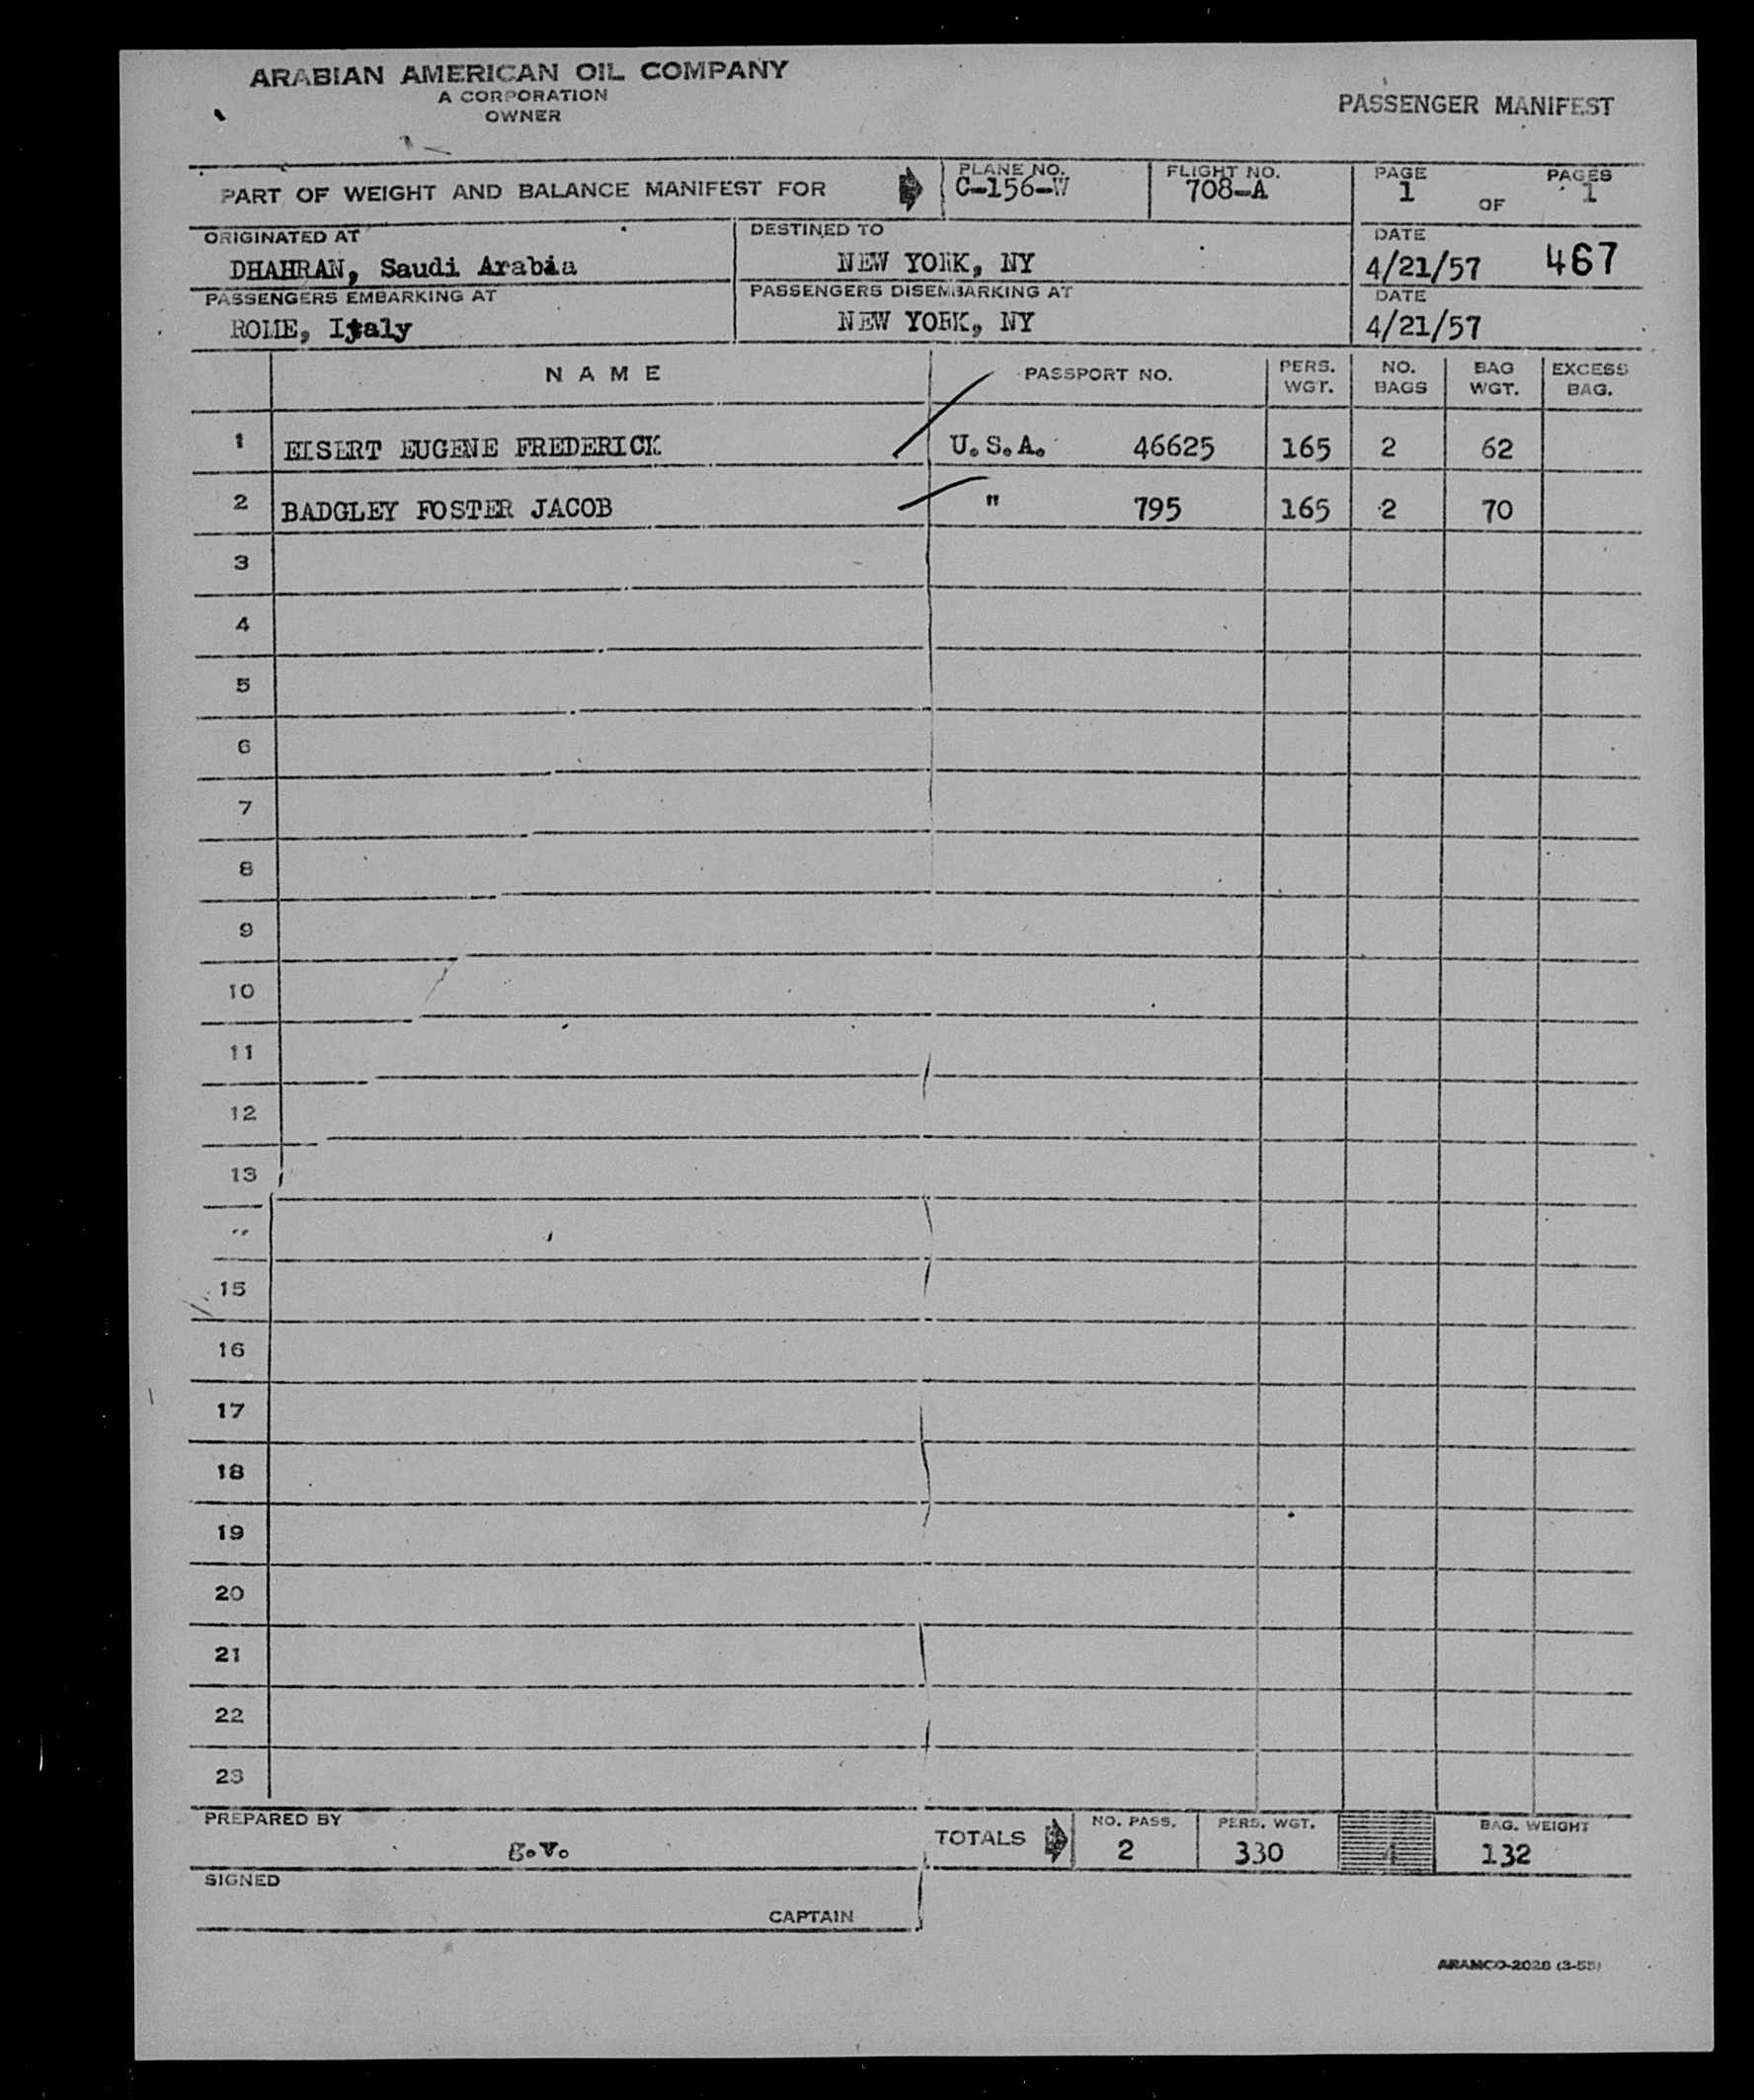 ARABIAN AMERICAN OIL COMPANY
A CORPORATION
OWNER
PASSENGER MANIFEST
PART OF WEIGHT AND BALANCE MANIFEST FOR
PLANE NO.
C-156-W
FLIGHT NO.
708-A
PAGE PAGES
1 OF 1
ORIGINATED AT
DHAHRAN, Saudi Arabia
DESTINED TO
NEW YORK, NY
DATE
4/21/57 467
PASSENGERS EMBARKING AT
ROME, Italy
PASSENGERS DISEMBARKING AT
NEW YORK, NY
DATE
4/21/57
NAME PASSPORT NO. PERS. WGT. NO. BAGS BAG WGT. EXCESS BAG.
1 EISERT EUGENE FREDERICK U.S.A. 46625 165 2 62
2 BADGLEY FOSTER JACOB " 795 165 2 70
3
4
5
6
7
8
9
10
11
12
13
15
16
17
18
19
20
21
22
23
PREPARED BY
g.v.
TOTALS
NO. PASS.
2
PERS. WGT.
330
4
BAG. WEIGHT
132
SIGNED
CAPTAIN
ARAMCO-2028 (3-55)